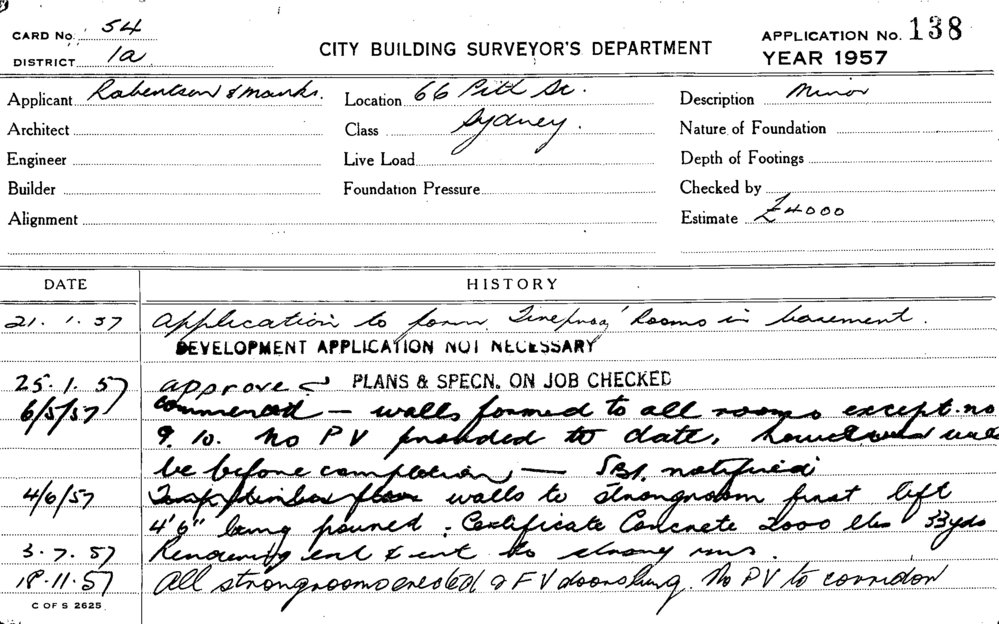 CARD No. 54
DISTRICT 1a
CITY BUILDING SURVEYOR'S DEPARTMENT
APPLICATION No. 138
YEAR 1957
Applicant Robertson & Marks. Location 66 Pitt St. Description Minor
Architect Class Sydney. Nature of Foundation
Engineer Live Load Depth of Footings
Builder Foundation Pressure Checked by
Alignment Estimate £4000
DATE HISTORY
21. 1. 57 Application to form Fireproof Rooms in basement.
DEVELOPMENT APPLICATION NOT NECESSARY
25. 1. 57 approve PLANS & SPECN. ON JOB CHECKED
6/5/57 commenced — walls formed to all rooms except. no
9. 10. No PV provided to date, will
be before completion — notified
4/6/57 walls to strongroom first lift
4'6" being poured. Certificate Concrete 2000 lbs 33yds
3. 7. 57 Rendering ext & int to strong rms.
18. 11. 57 All strongrooms erected & F V doors hung. No PV to corridor
C OF S 2625